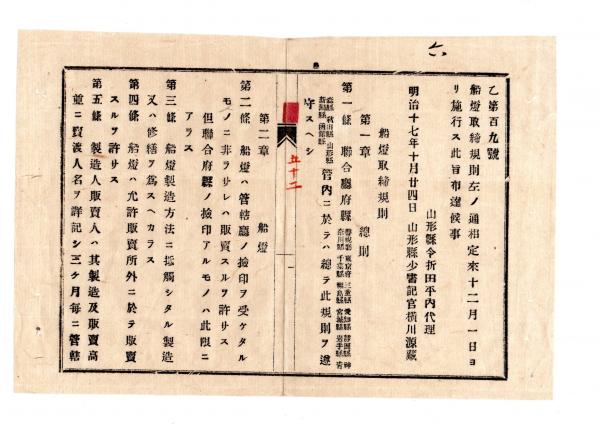 六
乙第百九號
船燈取締規則左ノ通相定來十二月一日ヨ
リ施行ス此旨布達候事
山形縣令折田平內代理
明治十七年十月廿四日 山形縣少書記官橫川源藏
船燈取締規則
第一章 總則
第一條 聯合廳府縣 警視廳 東京府 三重縣 愛知縣 靜岡縣 神
奈川縣 千葉縣 福島縣 宮城縣 岩手縣 靑
森縣 秋田縣 山形縣
新潟縣 函館縣 管內ニ於テハ總テ此規則ヲ遵
守スヘシ
五十二
第二章 船燈
第二條 船燈ハ管轄廳ノ撿印ヲ受ケタル
モノニ非ラサレハ販賣スルヲ許サス
但聯合府縣ノ撿印アルモノハ此限ニ
アラス
第三條 船燈製造方法ニ抵觸シタル製造
又ハ修繕ヲ爲スヘカラス
第四條 船燈ハ允許販賣所外ニ於テ販賣
スルヲ許サス
第五條 製造人販賣人ハ其製造及販賣高
並ニ買渡人名ヲ詳記シ三ケ月每ニ管轄